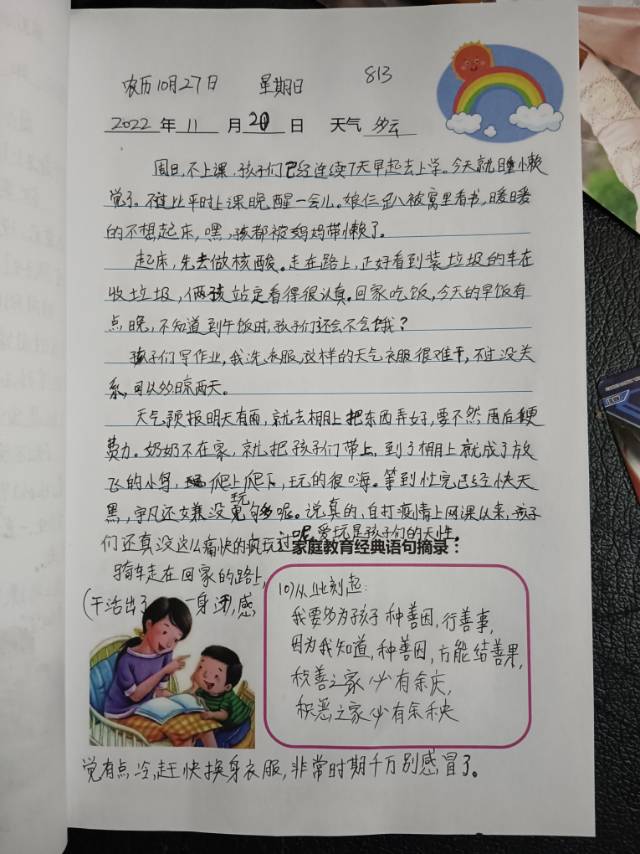 农历10月27日 星期日 813
2022 年 11 月 20 日 天气 多云
周日,不上课,孩子们已经连续7天早起去上学。今天就睡懒
觉了。不过比平时上课晚醒一会儿。娘仨趴被窝里看书,暖暖
的不想起床,嘿,孩都被妈妈带懒了。
起床,先去做核酸。走在路上,正好看到装垃圾的车在
收垃圾,俩孩站定看得很认真。回家吃饭,今天的早饭有
点晚,不知道到午饭时,孩子们还会不会饿?
孩子们写作业,我洗衣服,这样的天气衣服很难干,不过没关
系,可以多晾两天。
天气预报明天有雨,就去棚上把东西弄好,要不然雨后更
费力。奶奶不在家,就把孩子们带上,到了棚上就成了放
飞的小鸟,爬上爬下,玩的很嗨。等到忙完已经快天
黑,宇凡还又嫌没玩够呢。说真的,自打疫情上网课以来,孩子
们还真没这么痛快的疯玩过呢,爱玩是孩子们的天性。
家庭教育经典语句摘录:
骑车走在回家的路上,
(干活出了一身汗),感
10)从此刻起:
我要多为孩子种善因,行善事,
因为我知道,种善因,方能结善果,
积善之家必有余庆,
积恶之家必有余殃
觉有点冷,赶快换身衣服,非常时期千万别感冒了。